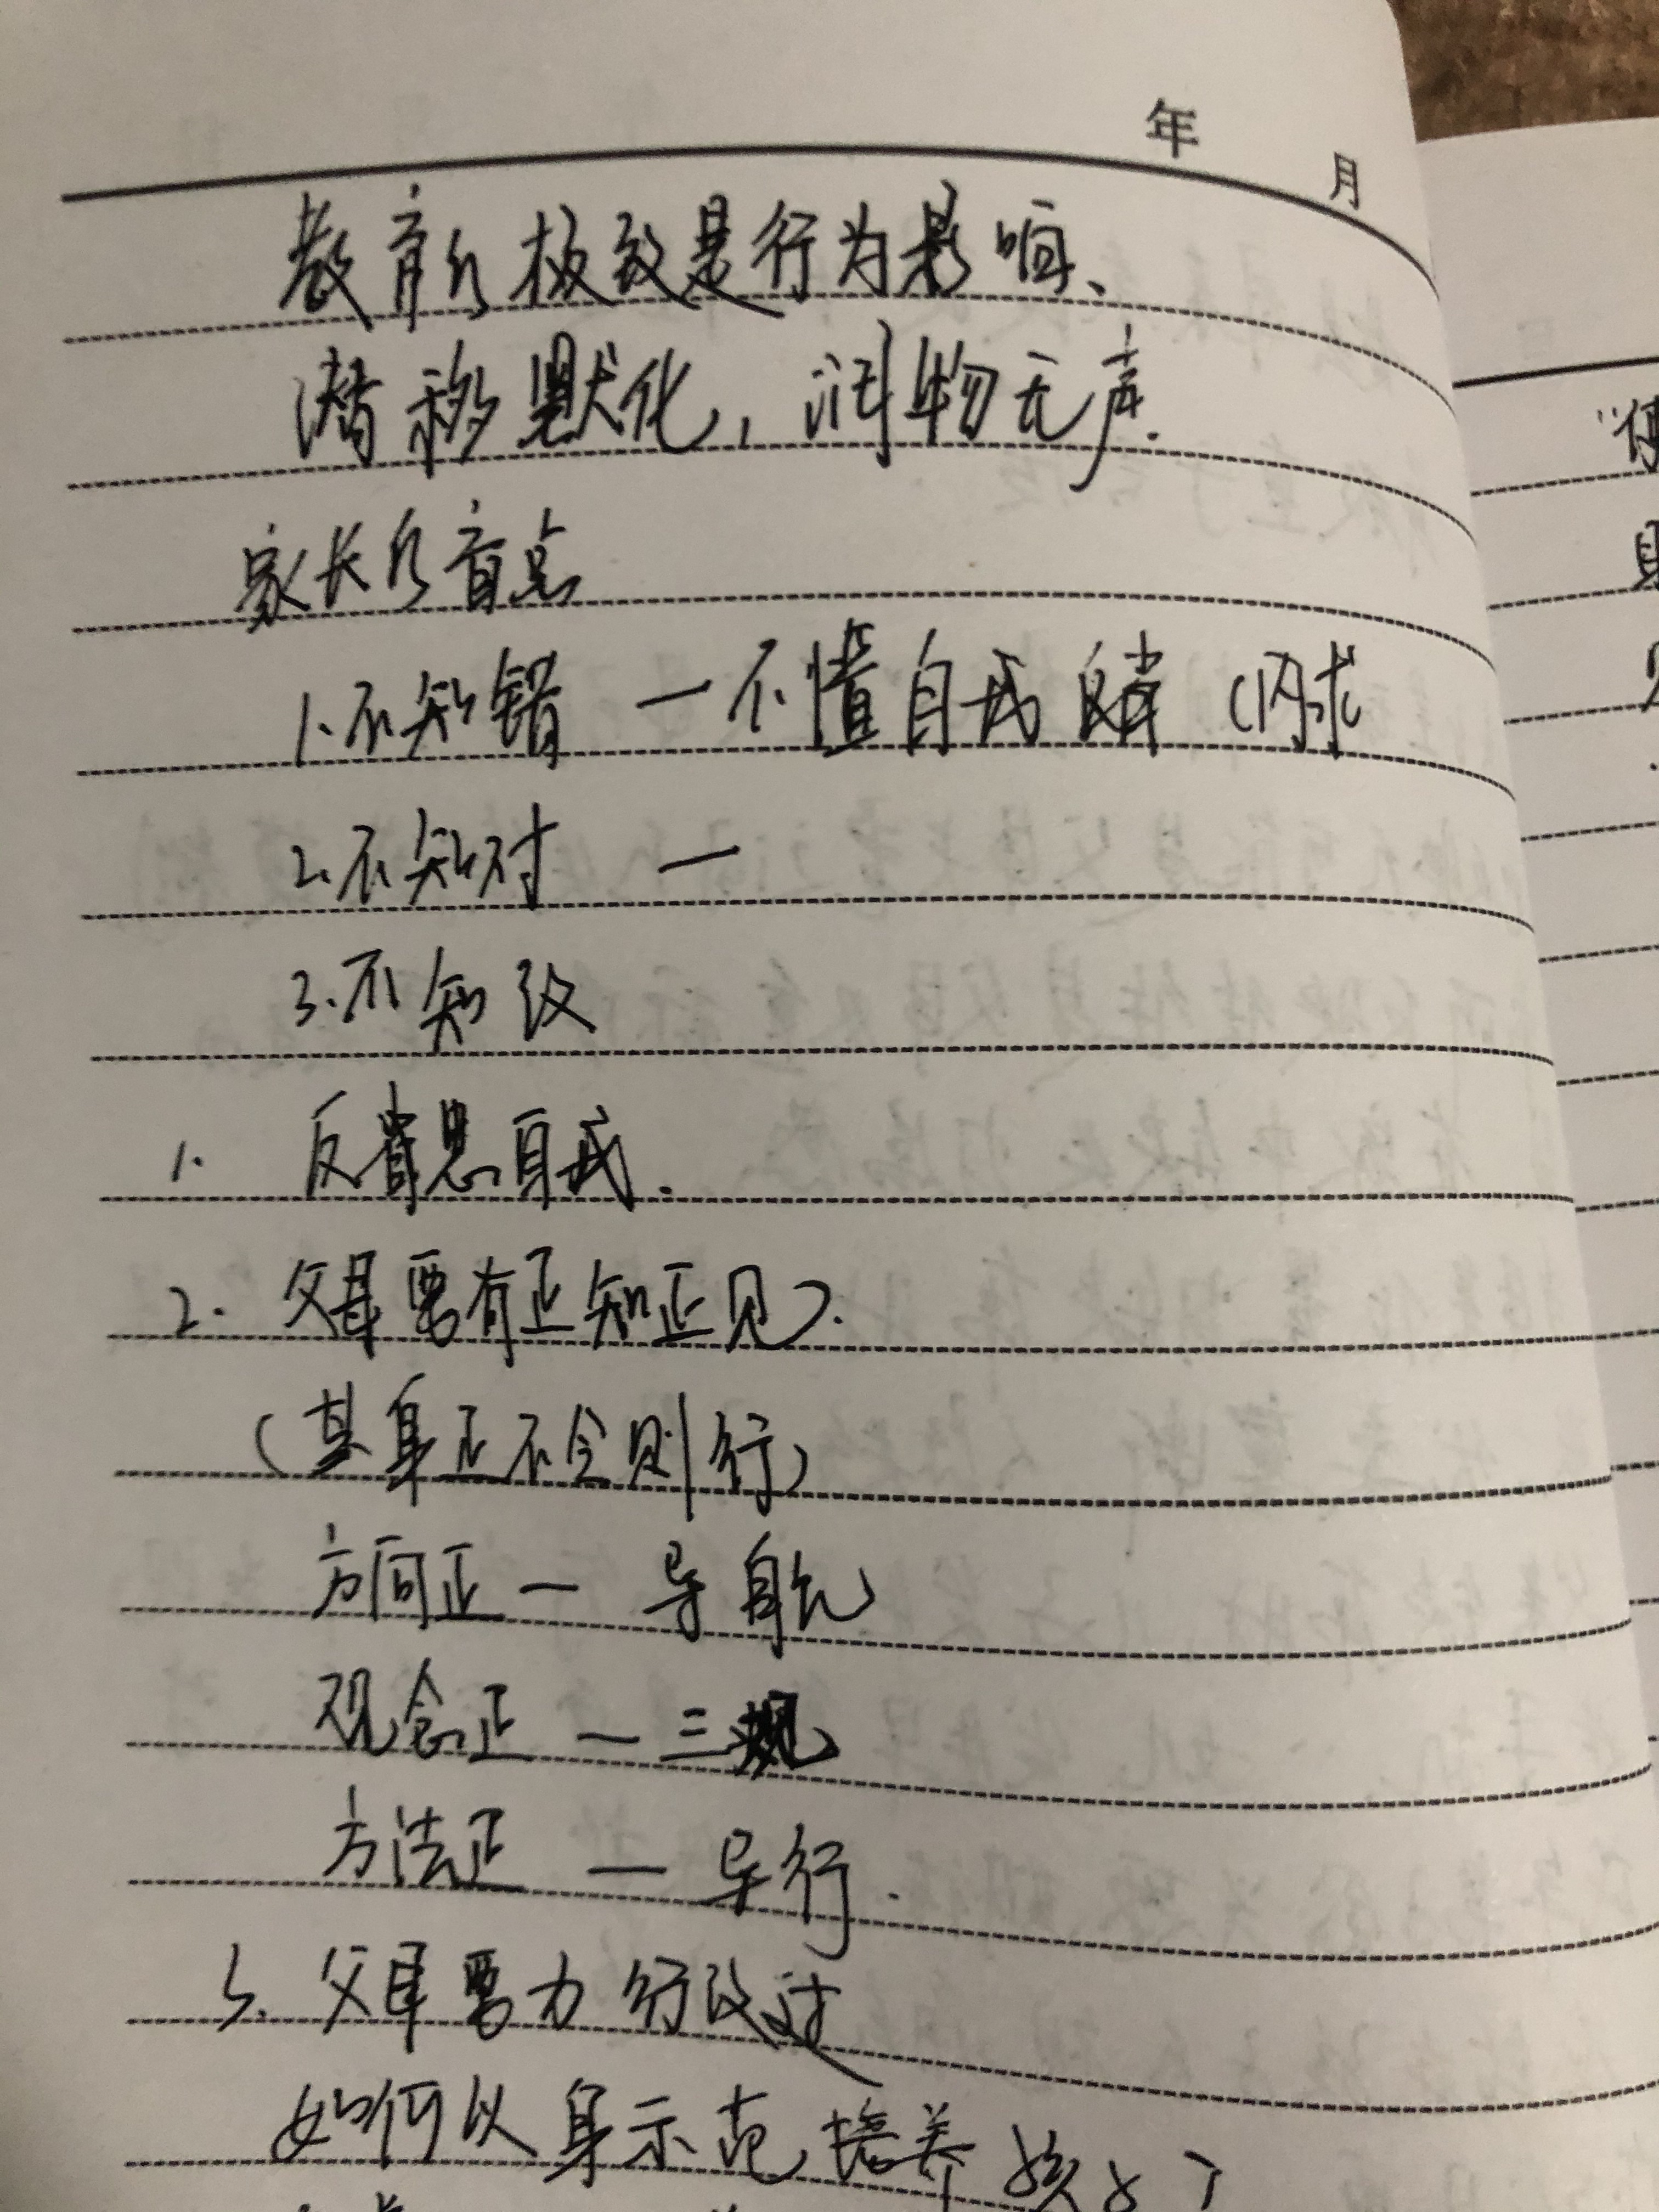 年 月
教育的极致是行为影响、
潜移默化，润物无声.
家长的盲点
1.不知错 — 不懂自我 （内求
2.不知对 —
3.不知改
1. 反省思自我.
2. 父母要有正知正见).
（其身正不令则行）
方向正 — 导航
观念正 — 三观
方法正 — 导行.
3. 父母要力行改过
如何以身示范，培养孩子